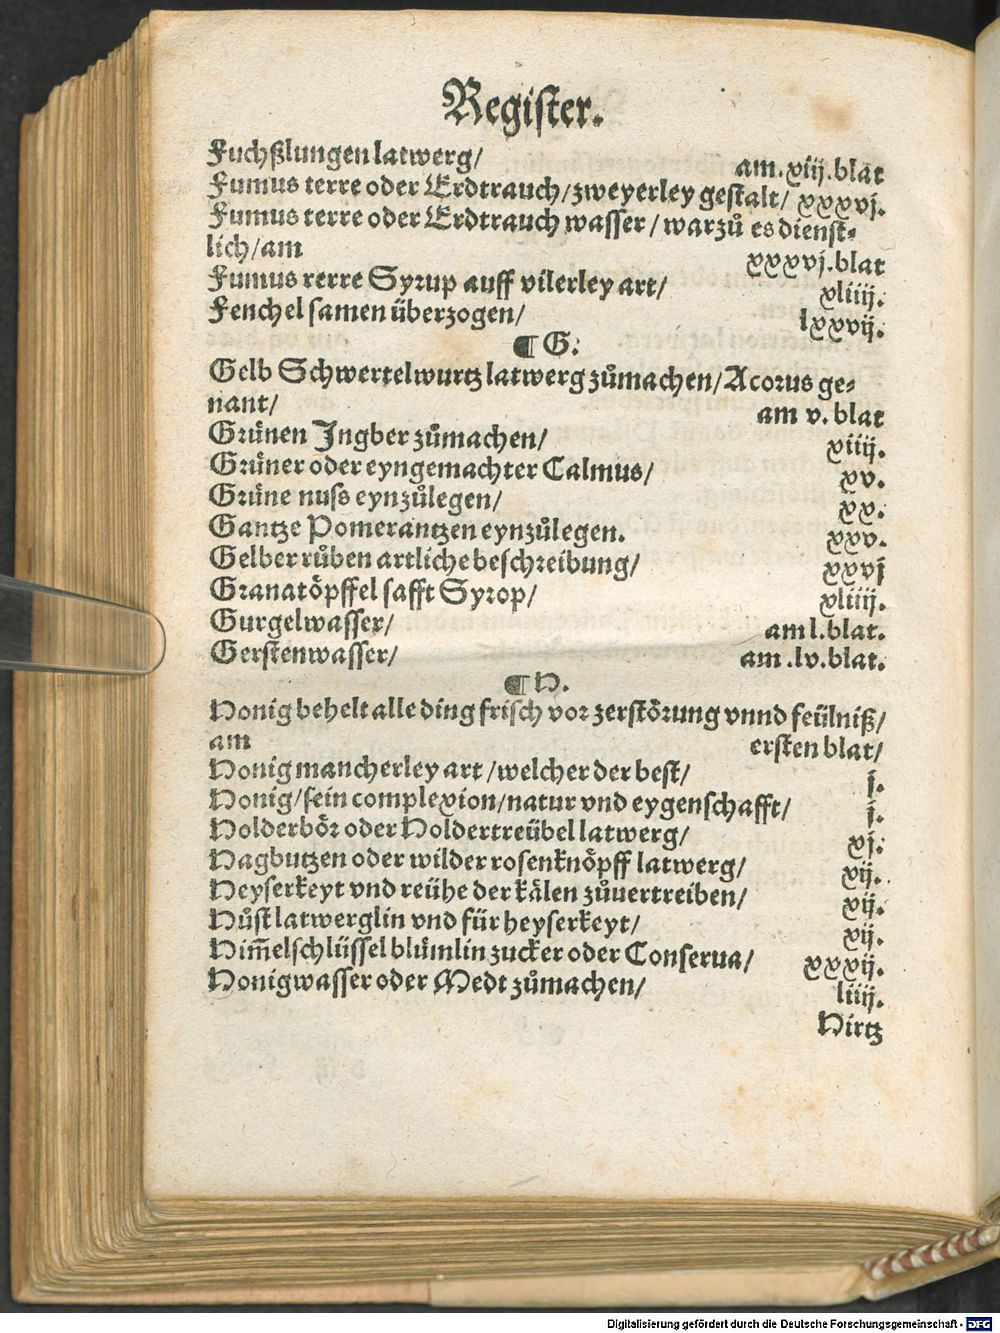 Register.
Fuchßlungen latwerg/ am.xiij.blat
Fumus terre oder Erdtrauch/zweyerley gestalt/ xxxvj.
Fumus terre oder Erdtrauch wasser/warzuͦ es dienst⸗
lich/am xxxvj.blat
Fumus rerre Syrup auff vilerley art/ xliiij.
Fenchel samen überzogen/ lxxvij.
¶ G.
Gelb Schwertelwurtz latwerg zuͦmachen/Acorus ge⸗
nant/ am v. blat
Gruͤnen Jngber zuͦmachen/ xiiij.
Gruͤner oder eyngemachter Calmus/ xv.
Gruͤne nuss eynzuͦlegen/ xx.
Gantze Pomerantzen eynzuͦlegen. xxv.
Gelber ruͦben artliche beschreibung/ xxvj
Granatoͤpffel safft Syrop/ xliiij.
Gurgelwasser/ am l.blat.
Gerstenwasser/ am .lv.blat.
¶ H.
Honig behelt alle ding frisch vor zerstoͤrung vnnd feülniß/
am ersten blat/
Honig mancherley art/welcher der best/ j.
Honig/sein complexion/natur vnd eygenschafft/ j.
Holderboͤr oder Holdertreübel latwerg/ xj.
Hagbutzen oder wilder rosenknoͤpff latwerg/ xij.
Heyserkeyt vnd reühe der kaͤlen zuͦuertreiben/ xij.
Huͦst latwerglin vnd für heyserkeyt/ xij.
Him̃elschlüssel bluͤmlin zucker oder Conserua/ xxxij.
Honigwasser oder Medt zuͦmachen/ liiij.
Hirtz
Digitalisierung gefördert durch die Deutsche Forschungsgemeinschaft - DFG